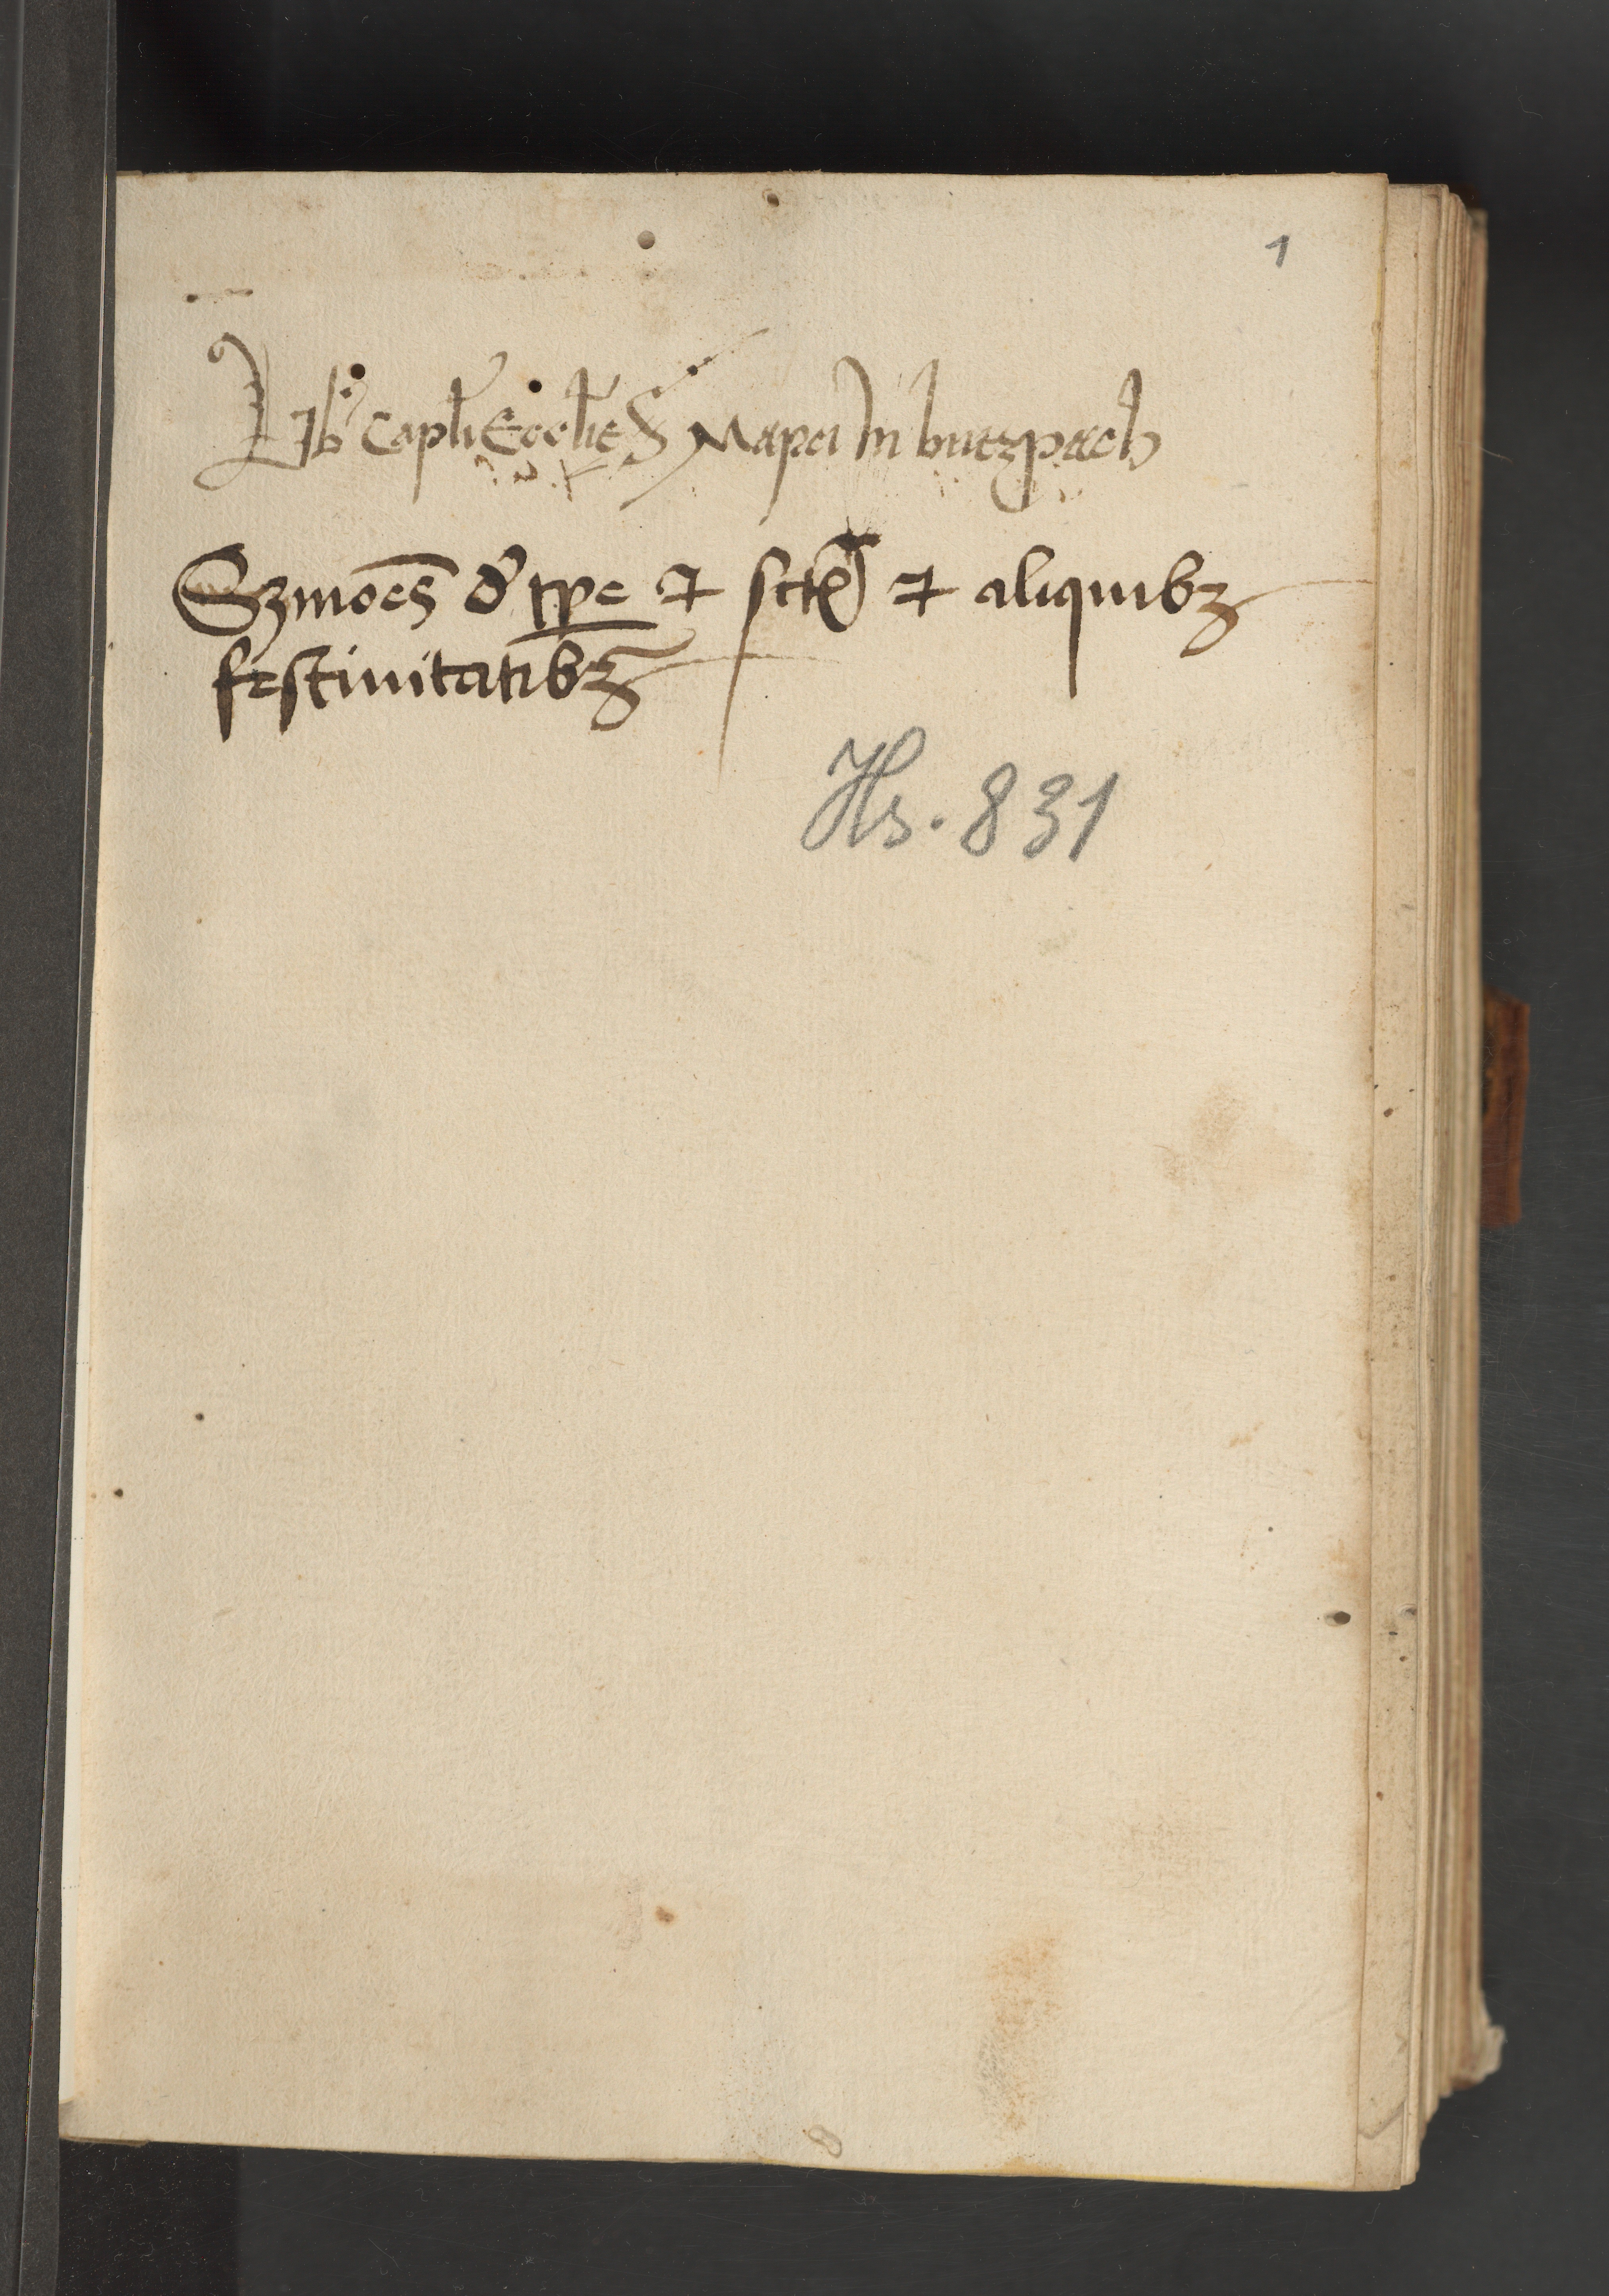 1
Lib' Capl'i Eccl'ie S Marci In butzpach
Sꝫmōes d' tꝑe ⁊ sctꝝ ⁊ aliquibꝫ
festiuitatibꝫ
Hs. 831